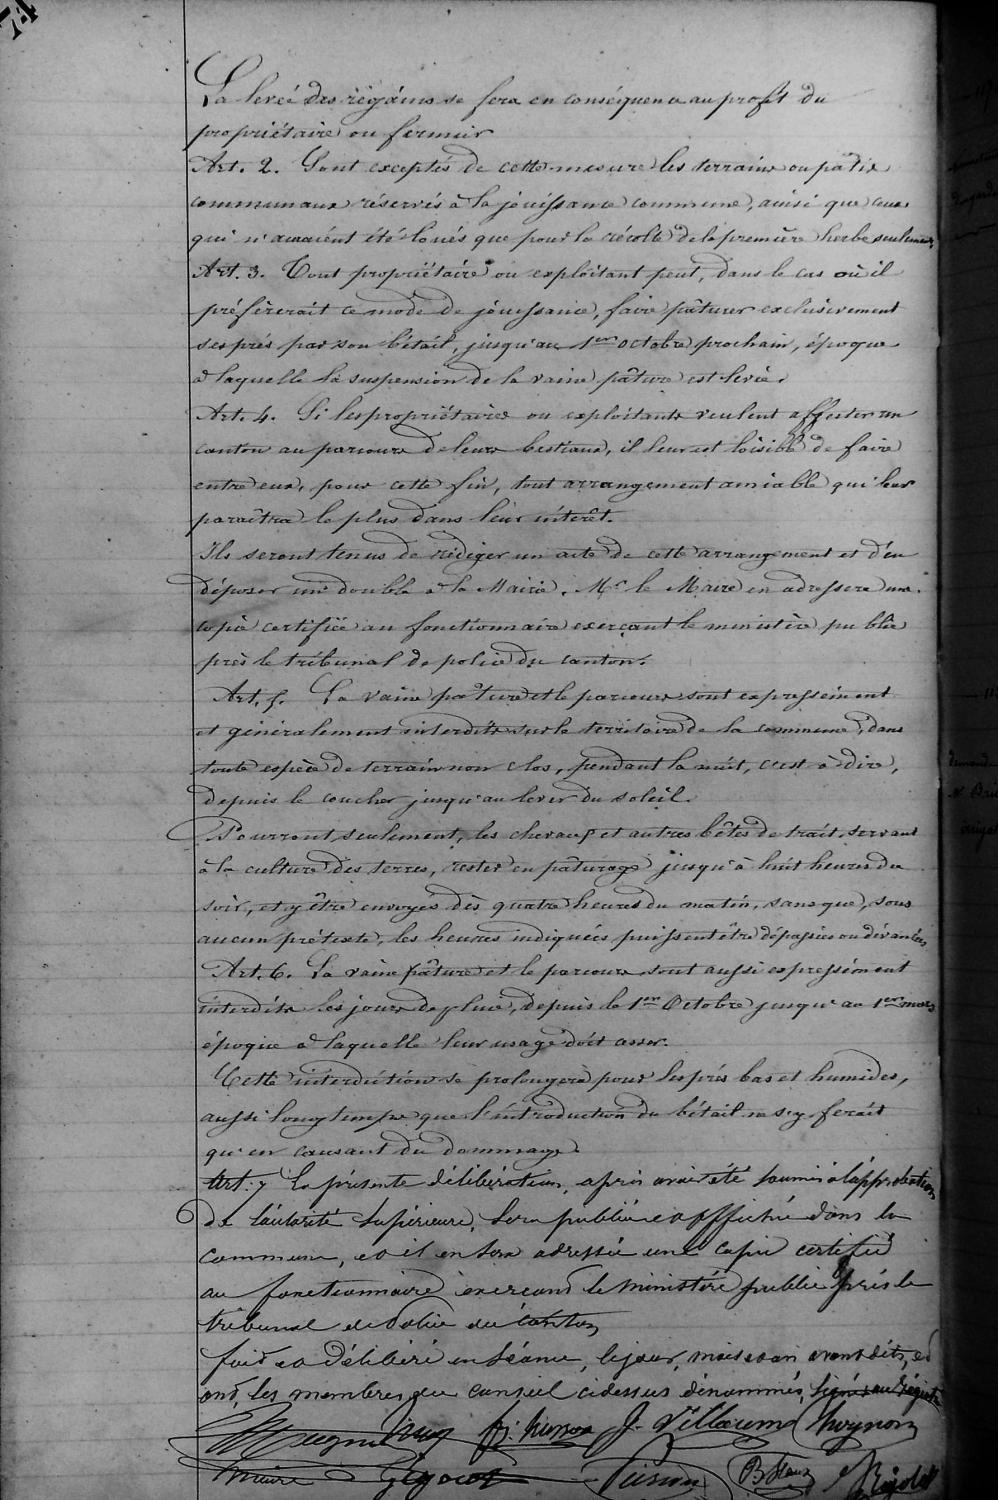 74
La levée des regains se fera en conséquence au profit du
propriétaire ou fermier
Art. 2. Sont exceptés de cette mesure les terrains ou patis
communaux réservés à la jouissance commune, ainsi que ceux
qui n'auraient été loués que pour la récolte de la première herbe seulement
Art. 3. Tout propriétaire ou exploitant peut, dans le cas où il
préfèrerait ce mode de jouissance, faire pâturer exclusivement
ses prés par son bétail, jusqu'au 1er octobre prochain, époque
à laquelle la suspension de la vaine pâture est levée.
Art. 4. Si les propriétaires ou exploitants veulent affecter un
canton au parcours de leurs bestiaux, il leur est loisible de faire
entre eux, pour cette fin, tout arrangement amiable qui leur
paraîtra le plus dans leur intérêt.
Ils seront tenus de rédiger un acte de cette arrangement et d'en
déposer un double à la Mairie. Mr le Maire en adressera une
copie certifiée au fonctionnaire exerçant le ministère public
près le tribunal de police du canton.
Art. 5. La vaine pâture et le parcours sont expressément
et généralement interdits sur le territoire de la commune, dans
toute espèce de terrain non clos, pendant la nuit, c'est à dire,
depuis le coucher jusqu'au lever du soleil.
Pourront seulement, les chevaux et autres bêtes de trait, servant
à la culture des terres, rester en pâturage jusqu'à huit heures du
soir, et y être envoyés dès quatre heures du matin, sans que, sous
aucun prétexte, les heures indiquées puissent être dépassées ou dévancées
Art. 6. La vaine pâture et le parcours sont aussi expressément
interdits les jours de pluie, depuis le 1er Octobre jusqu'au 1er mars
époque à laquelle leur usage doit cesser.
Cette interdiction se prolongera pour les prés bas et humides,
aussi longtemps que l'introduction du bétail ne s'y ferait
qu'en causant du dommage.
Art. 7 La présente délibération, après avoir été soumise à l'approbation
de l'autorité Supérieure, sera publiée et affichée dans la
commune, et il en sera adressée une copie certifiée
au fonctionnaire exerçant le Ministère public près le
tribunal de Police du Canton
fait et Délibéré en Séance, le jour, mois et an avant dits, et
ont, les membres du conseil cidessus dénommés, signé au régistre
J. Villaume Thoynon
maire